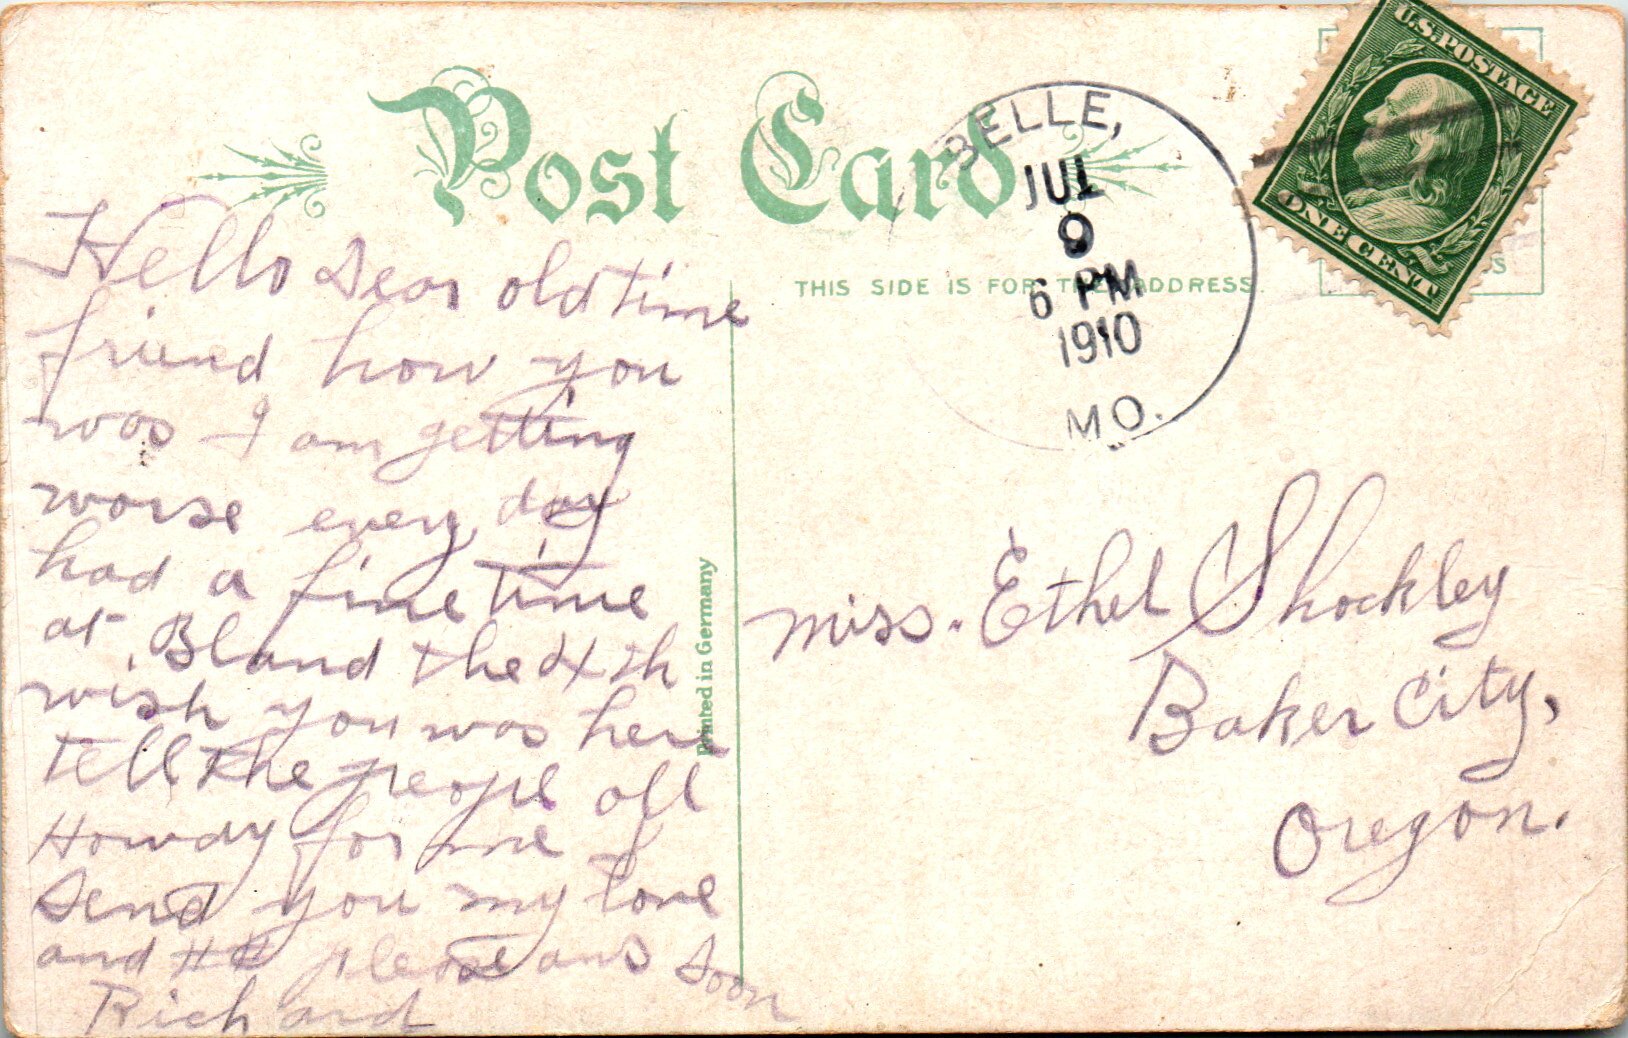 Post Card
BELLE,
JUL
9
6 PM
1910
MO.
U.S. POSTAGE
ONE CENT
THIS SIDE IS FOR THE ADDRESS.
Hello Dear old time
friend how you
was I am getting
worse every day
had a fine time
at Bland the 4th
wish you was here
tell the peopl all
Howdy for me I
send you my love
and please ans soon
Richard
Printed in Germany
miss. Ethel Shockley
Baker City,
Oregon.